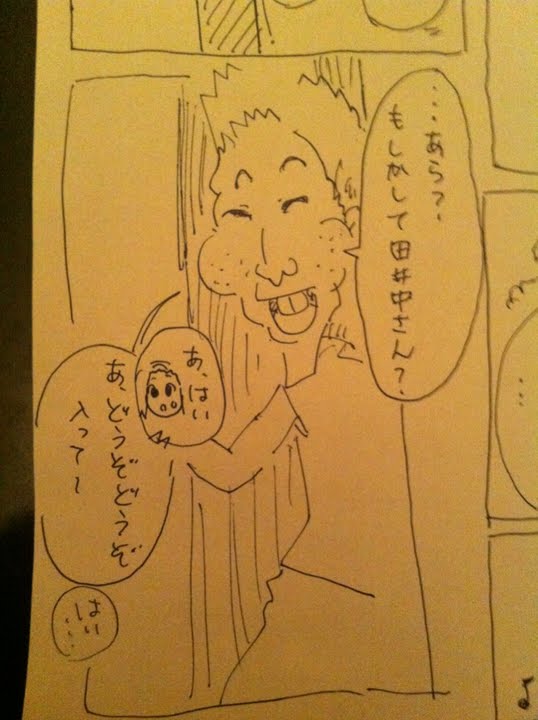 …あら?
もしかして田井中さん?
あ、はい
あ、どうぞどうぞ
入って~
はい…
…
♪